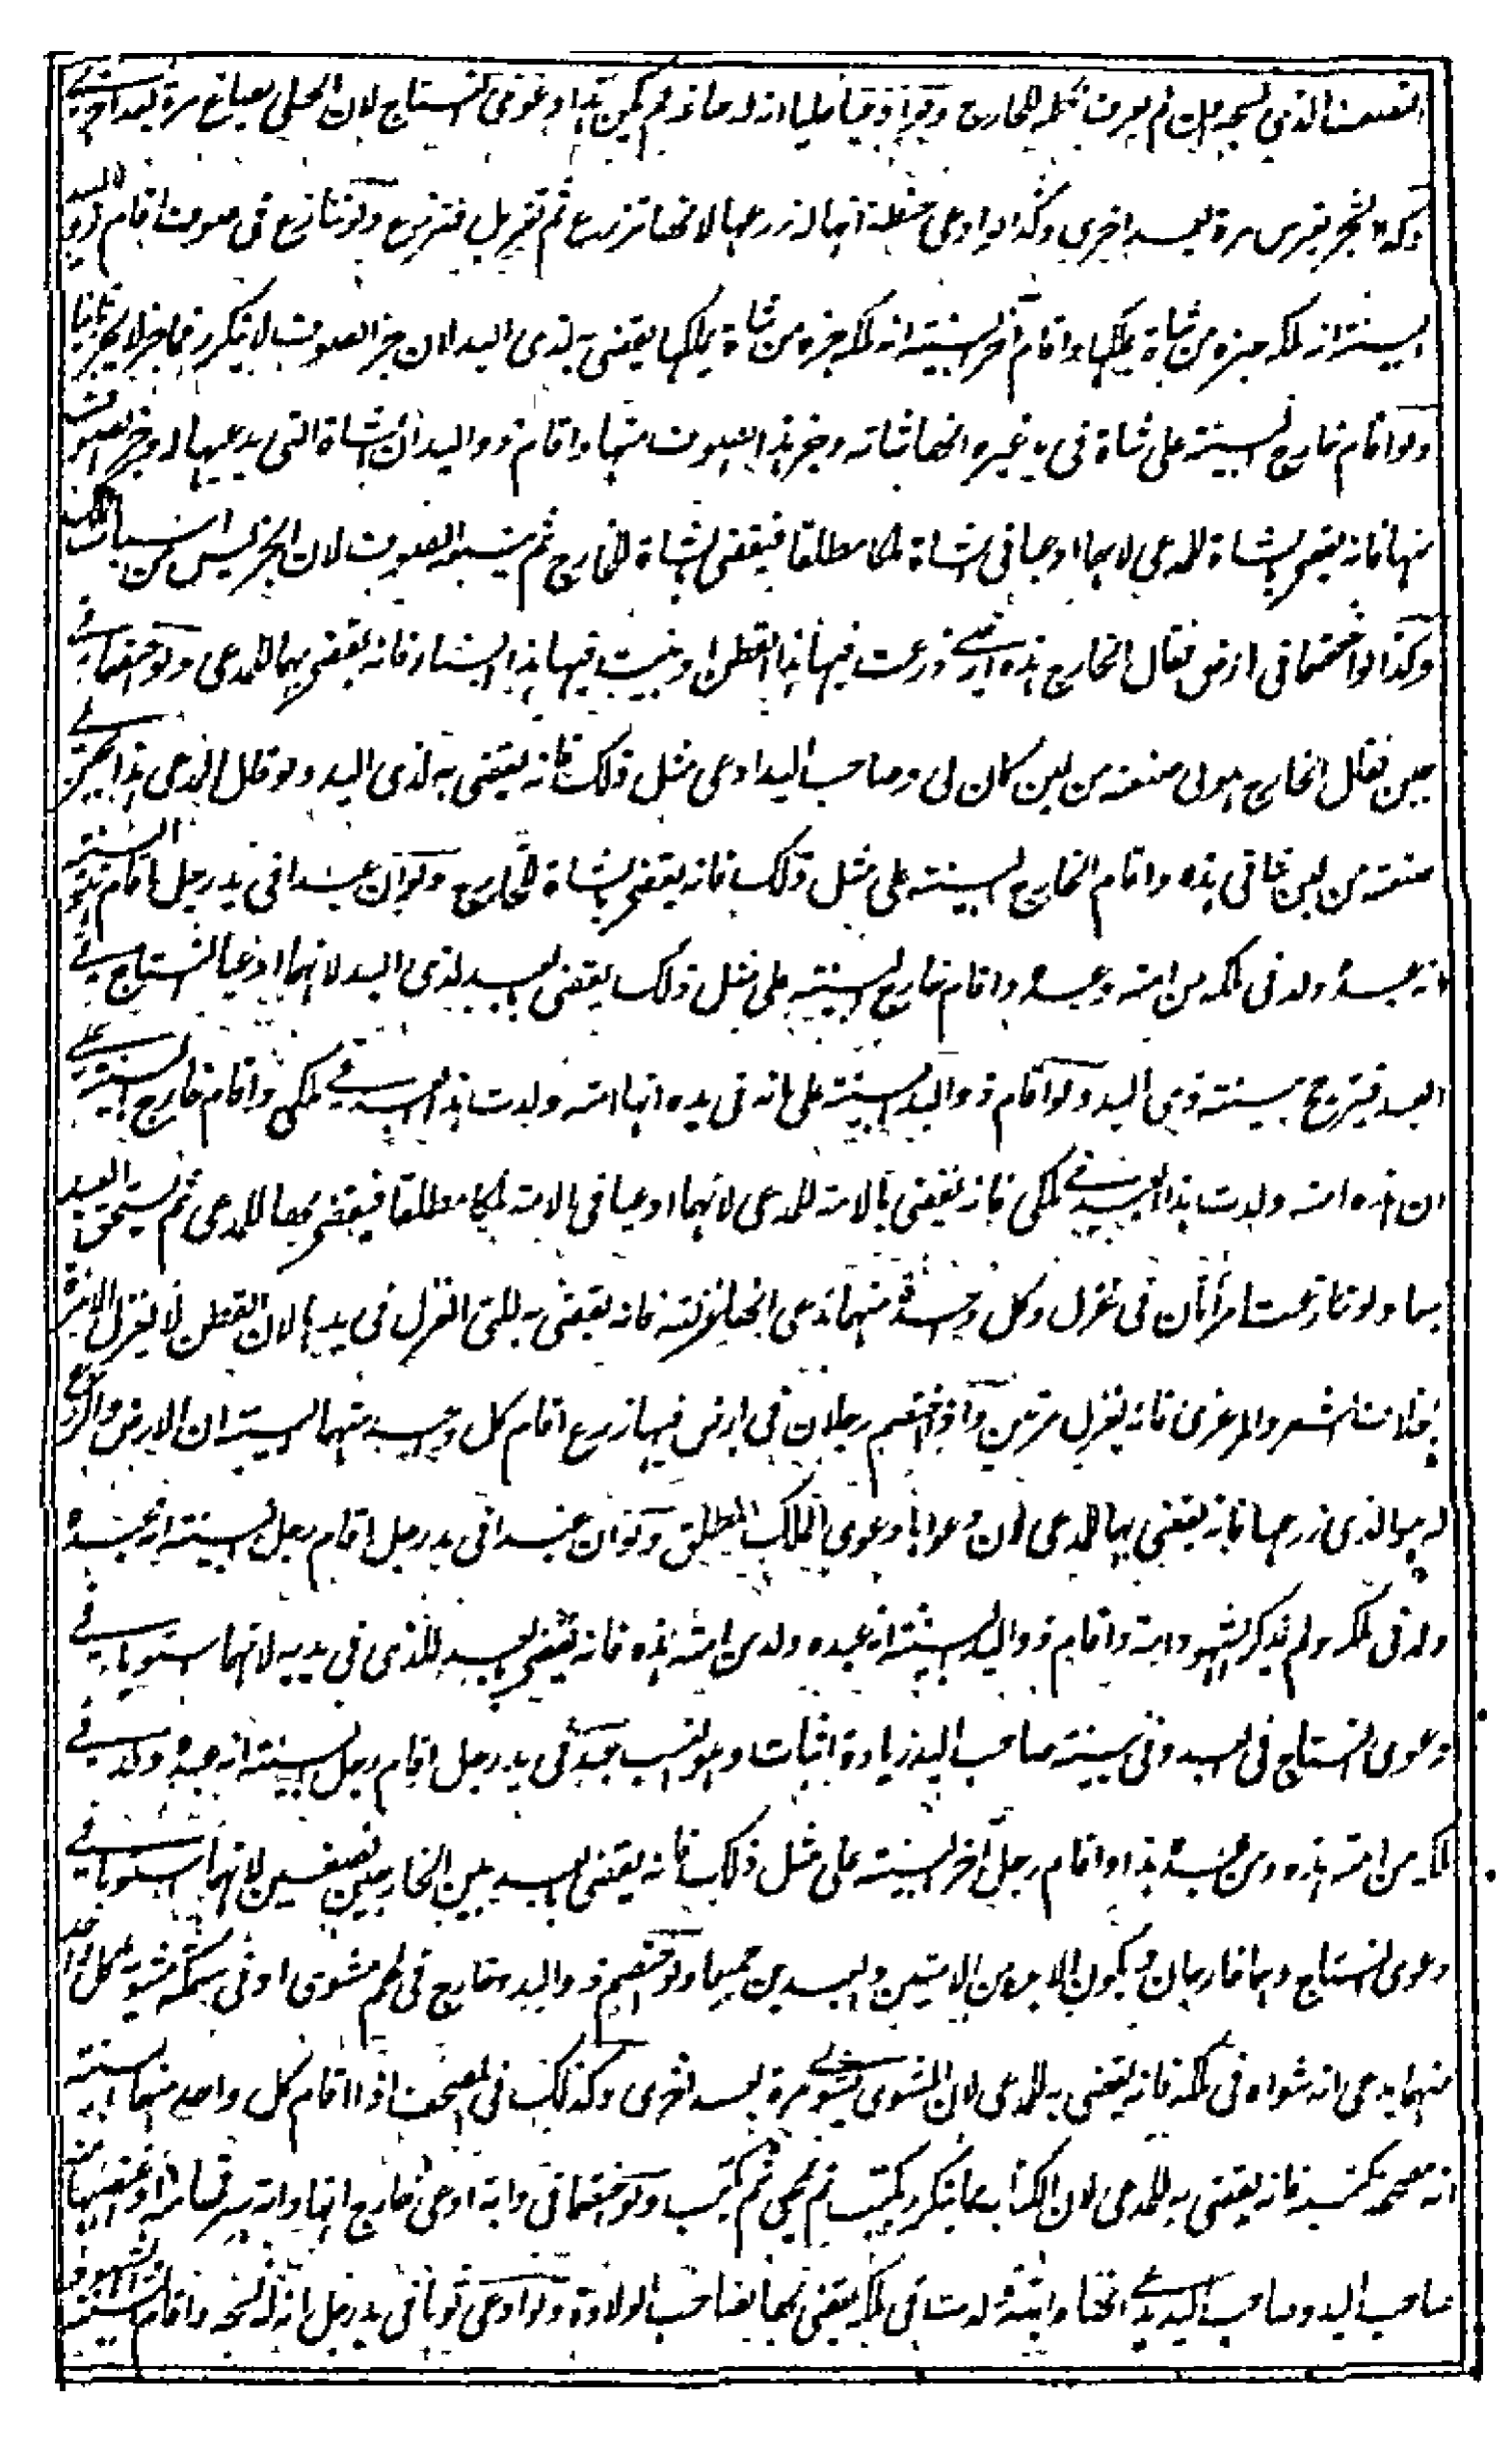 النصف الذي نسجه وان لم يعرف فكله للخارج ولو ادعيا حليا انه له صاغه لم يكن هذا دعوى النتاج لان الحلي يصاغ مرة بعد اخرى
وكذا الشجر يغرس مرة بعد اخرى وكذا لو ادعى حنطة انها له زرعها لانها تزرع ثم تغربل فتزرع ولو تنازعا في صوف اقام ذو اليد
البينة انه ملكه جزه من شاة يملكها واقام آخر البينة انه ملكه جزه من شاة يملكها يقضى به لذي اليد لان جز الصوف لا يتكرر فما جز لا يجز ثانيا
ولو اقام خارج البينة على شاة في يد غيره انها شاته وجز هذا الصوف منها واقام ذو اليد ان الشاة التي يدعيها له وجز الصوف
منها فانه يقضى بالشاة للمدعي لانهما ادعيا في الشاة ملكا مطلقا فيقضى بالشاة للخارج ثم يتبعه الصوف لان الجز ليس من اسباب الملك
وكذا لو اختصما في ارض فقال الخارج هذه ارضي زرعت فيها هذا القطن او بنيت فيها هذا البناء فانه يقضى بها للمدعي ولو اختصما في
جبن فقال الخارج هو لي صنعته من لبن كان لي وصاحب اليد ادعى مثل ذلك فانه يقضى به لذي اليد ولو قال الذي هذا الجبن لي
صنعته من لبن شاتي هذه واقام الخارج البينة على مثل ذلك فانه يقضى بالشاة للخارج ولو ان عبدا في يد رجل اقام هو البينة
انه عبده ولد في ملكه من امته وعبده واقام خارج البينة على مثل ذلك يقضى بالعبد لذي اليد لانهما ادعيا النتاج في
العبد فيترجح بينة ذي اليد ولو اقام ذو اليد البينة على امة في يده انها امته ولدت هذا العبد في ملكي واقام خارج البينة على
ان هذه امته ولدت هذا العبد في ملكي فانه يقضى بالامة للمدعي لانهما ادعيا في الامة ملكا مطلقا فيقضى بها للمدعي ثم يستحق العبد
بها ولو تنازعت امرأتان في غزل وكل واحدة منهما تدعي انها غزلته فانه يقضى به للتي الغزل في يدها لان القطن لا يغزل الا مرة
بخلاف الشعر والمرعزى فانه يغزل مرتين واذا اختصم رجلان في ارض فيها زرع اقام كل واحد منهما البينة ان الارض والزرع
له هو الذي زرعها فانه يقضى بها للمدعي لان دعواها دعوى الملك المطلق ولو ان عبدا في يد رجل اقام رجل البينة انه عبده
ولد في ملكه ولم يذكر الشهود امه واقام ذو اليد البينة انه عبده ولد من امته هذه فانه يقضى بالعبد للذي في يديه لانهما استويا في
دعوى النتاج في العبد وفي بينة صاحب اليد زيادة اثبات وهو النسب عبد في يد رجل اقام رجل البينة انه عبده ولد في
ملكه من امته هذه ومن عبده هذا واقام رجل آخر البينة على مثل ذلك فانه يقضى بالعبد بين الخارجين نصفين لانهما استويا في
دعوى النتاج وهما خارجان ويكون الابن من الامتين والعبدين جميعا ولو اختصم ذو اليد وخارج في لحم مشوي او في سمكة مشوية كل واحد
منهما يدعي انه شواه في ملكه فانه يقضى به للمدعي لان المشوي يشوى مرة بعد اخرى وكذلك في المصحف اذا اقام كل واحد منهما البينة
انه مصحفه كتبه فانه يقضى به للمدعي لان الكتابة مما يتكرر يكتب ثم يمحى ثم يكتب ولو اختصما في دابة ادعى خارج انها دابته سرقها منه او غصبها منه
صاحب اليد وصاحب اليد يدعي انها دابته ولدت في ملكه يقضى بها لصاحب الولادة ولو ادعى ثوبا في يد رجل انه له نسجه واقام البينة الشهود